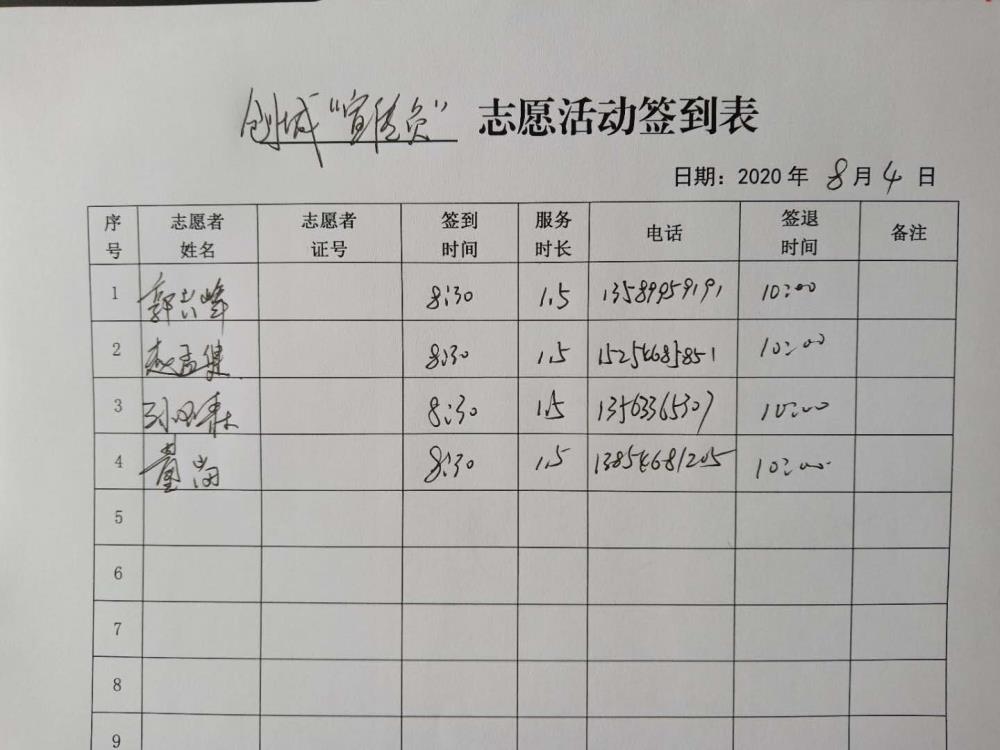 创城“宣传员” 志愿活动签到表
日期：2020 年 8 月 4 日
序号 志愿者姓名 志愿者证号 签到时间 服务时长 电话 签退时间 备注
1 郭 峰 8:30 1.5 13589959191 10:00
2 赵孟健 8:30 1.5 15254685851 10:00
3 孙 8:30 1.5 13563365307 10:00
4 8:30 1.5 13854681205 10:00
5
6
7
8
9